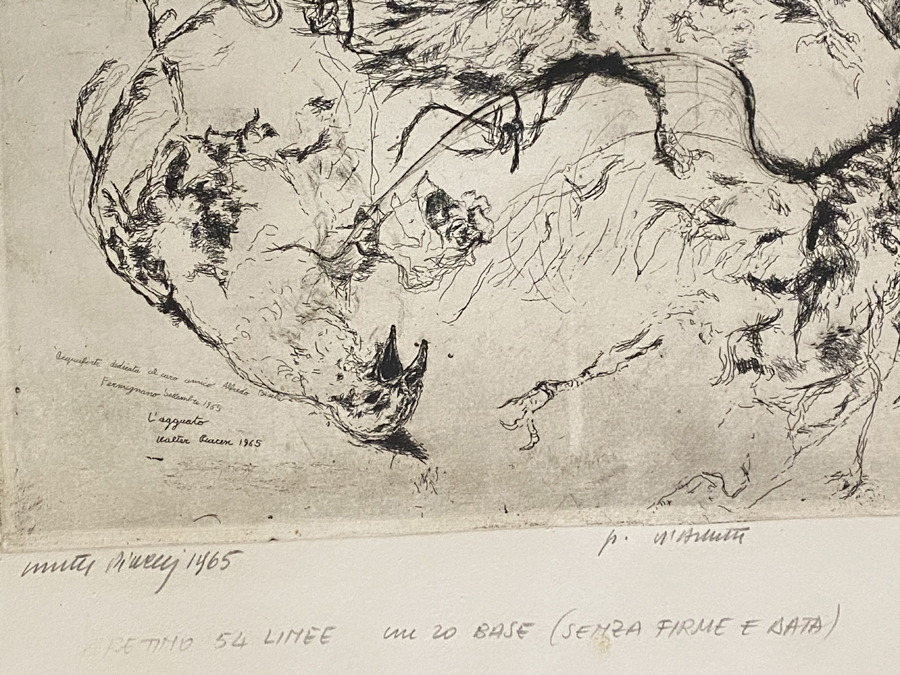 Acquaforte dedicata al caro amico Alfredo
Fermignano Settembre 1965
L'agguato
Walter Piacesi 1965
Walter Piacesi 1965
p. d'Artista
RETINO 54 LINEE cm 20 BASE (SENZA FIRME E DATA)